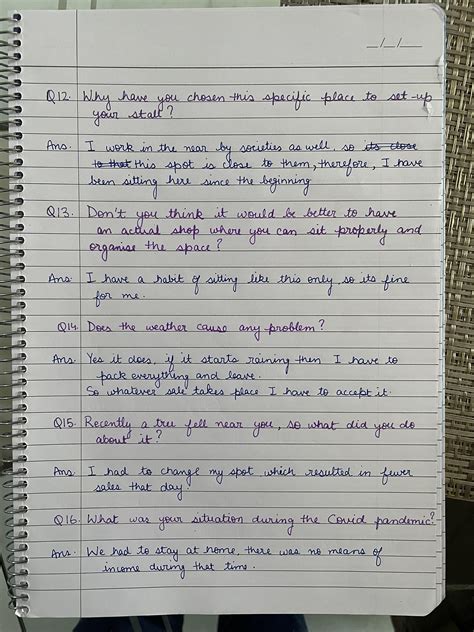 _/_/_
Q12. Why have you chosen this specific place to set-up
your stall?
Ans. I work in the near by societies as well, so its close
to that this spot is close to them, therefore, I have
been sitting here since the beginning
Q13. Don't you think it would be better to have
an actual shop where you can sit properly and
organise the space?
Ans. I have a habit of sitting like this only, so its fine
for me.
Q14. Does the weather cause any problem?
Ans. Yes it does, if it starts raining then I have to
pack everything and leave.
So whatever sale takes place I have to accept it.
Q15. Recently a tree fell near you, so what did you do
about it?
Ans. I had to change my spot which resulted in fewer
sales that day.
Q16. What was your situation during the Covid pandemic?
Ans. We had to stay at home, there was no means of
income during that time.